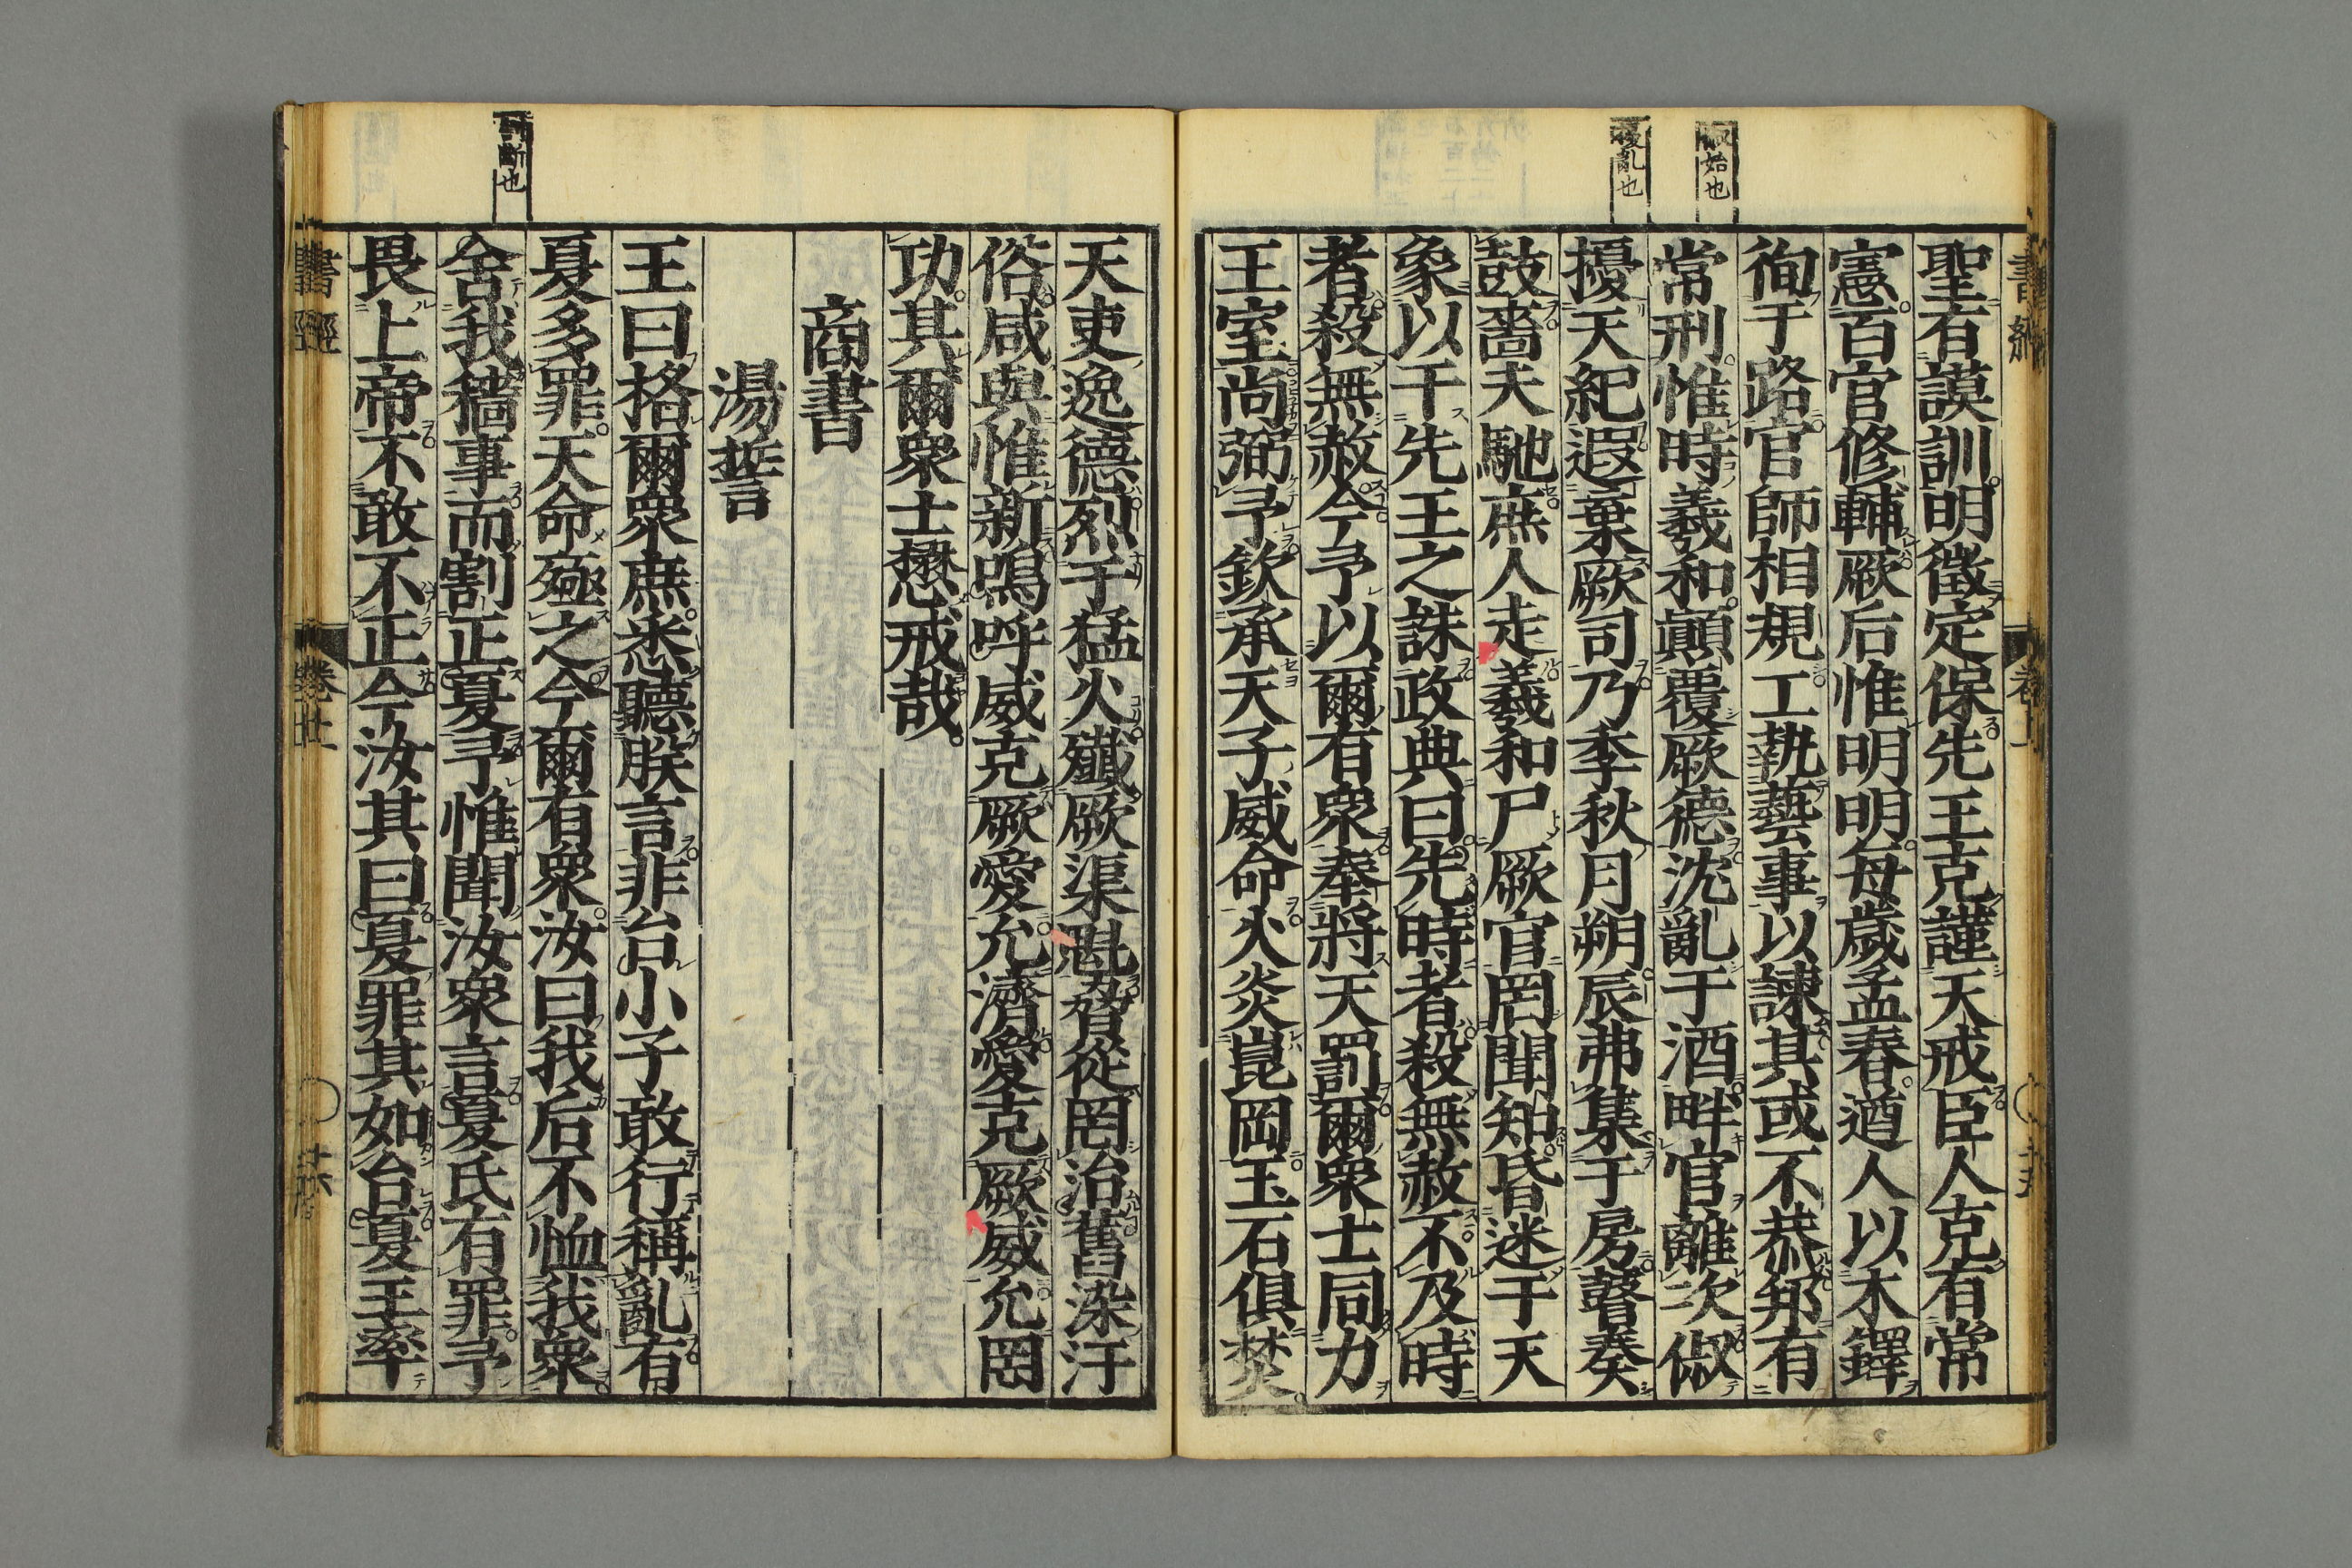 俶始也
擾亂也
聖有謨訓明徵定保先王克謹天戒臣人克有常
憲百官修輔厥后惟明明每歲孟春遒人以木鐸
徇于路官師相規工執藝事以諫其或不恭邦有
常刑惟時羲和顛覆厥德沈亂于酒畔官離次俶
擾天紀遐棄厥司乃季秋月朔辰弗集于房瞽奏
鼓嗇夫馳庶人走羲和尸厥官罔聞知昏迷于天
象以干先王之誅政典曰先時者殺無赦不及時
者殺無赦今予以爾有眾奉將天罰爾眾士同力
王室尚弼予欽承天子威命火炎崑岡玉石俱焚
割斷也
天吏逸德烈于猛火殲厥渠魁脅從罔治舊染汙
俗咸與惟新嗚呼威克厥愛允濟愛克厥威允罔
功其爾眾士懋戒哉
商書
湯誓
王曰格爾眾庶悉聽朕言非台小子敢行稱亂有
夏多罪天命殛之今爾有眾汝曰我后不恤我眾
舍我穡事而割正夏予惟聞汝眾言夏氏有罪予
畏上帝不敢不正今汝其曰夏罪其如台夏王率
書經